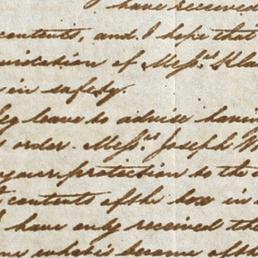 I have received
contents, and I hope that
of Mess.rs
in safety.
beg leave to advise having
order. Mess.rs Joseph
your protection to the
contents of the box in
have only received the
me what is become of the